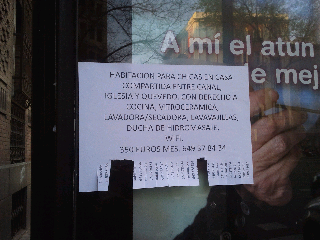 A mí el atún
e mej
HABITACION PARA CHICAS EN CASA
COMPARTIDA ENTRE CANAL,
IGLESIA Y QUEVEDO. CON DERECHO A
COCINA, VITROCERAMICA,
LAVADORA/SECADORA, LAVAVAJILLAS,
DUCHA DE HIDROMASAJE,
EUROS MES.